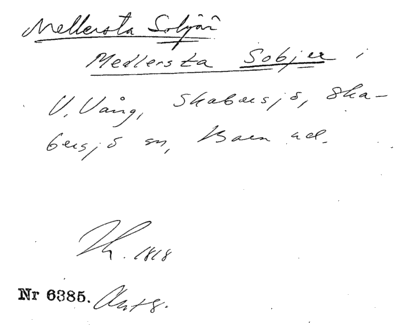 Mellersta Soljäi
Medlersta Sobjer i
V. Vång, Skabersjö, Ska-
bersjö sn, Bara hd.
1818
Nr 6385.